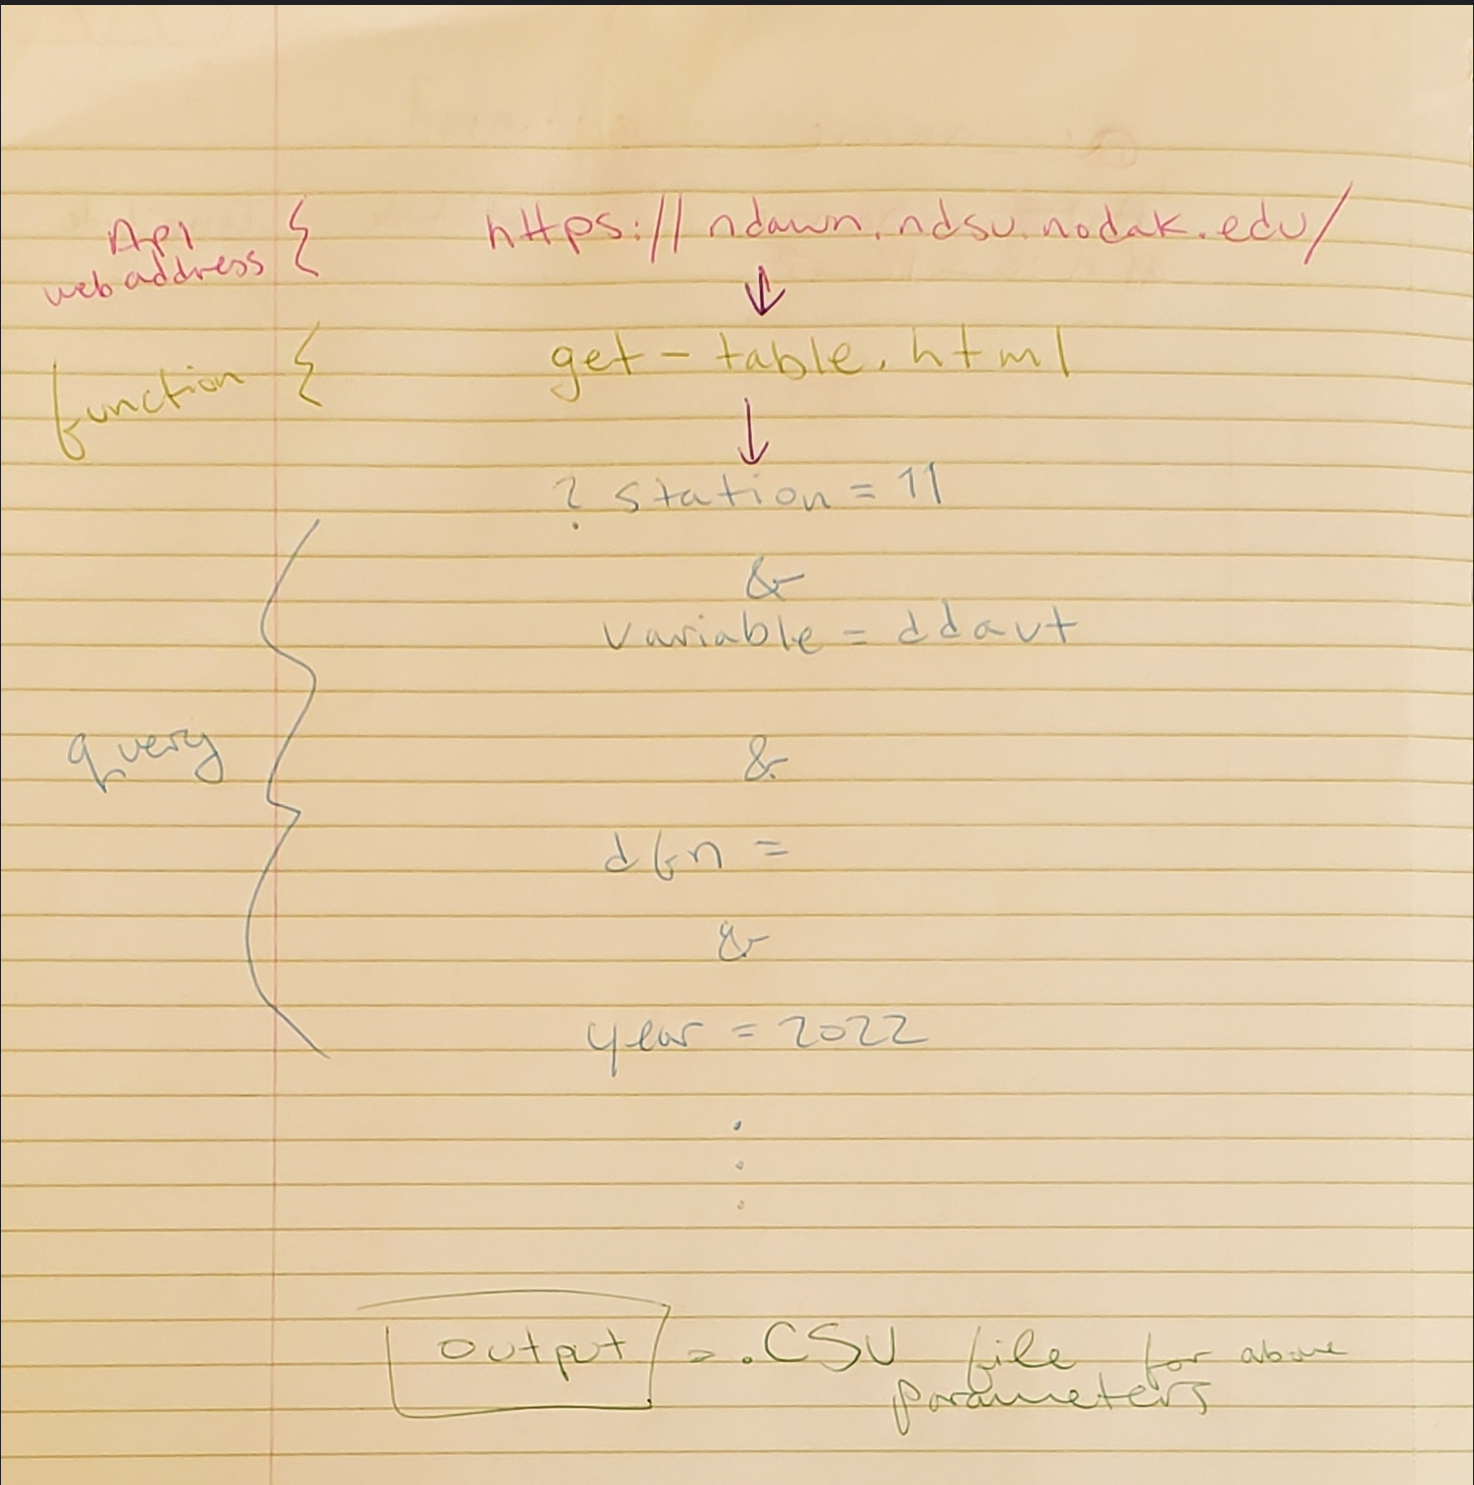 Api
web address { https://ndawn.ndsu.nodak.edu/
↓
function { get-table.html
↓
? station = 11
&
variable = ddavt
&
query { dfn =
&
year = 2022
.
.
.
output = .CSV file for above
parameters